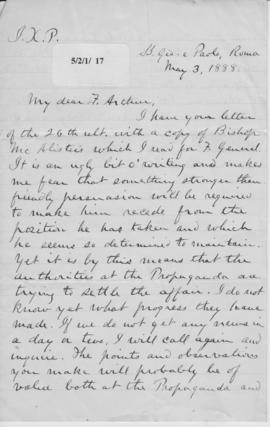 I.X.P.
5/2/1/ 17
SS. Gio: e Paolo, Roma
May 3, 1888.
My dear F. Arthur,
I have your letter
of the 26th ult. with a copy of Bishop
Mc Alister's which I read for F. General.
It is an ugly bit o' writing and makes
me fear that something stronger than
friendly persuasion will be required
to make him recede from the
position he has taken and which
he seems so determined to maintain.
Yet it is by this means that the
authorities at the Propaganda are
trying to settle the affair. I do not
know yet what progress they have
made. If we do not get any news in
a day or two, I will call again and
inquire. The points and observations
you make will probably be of
value both at the Propaganda and